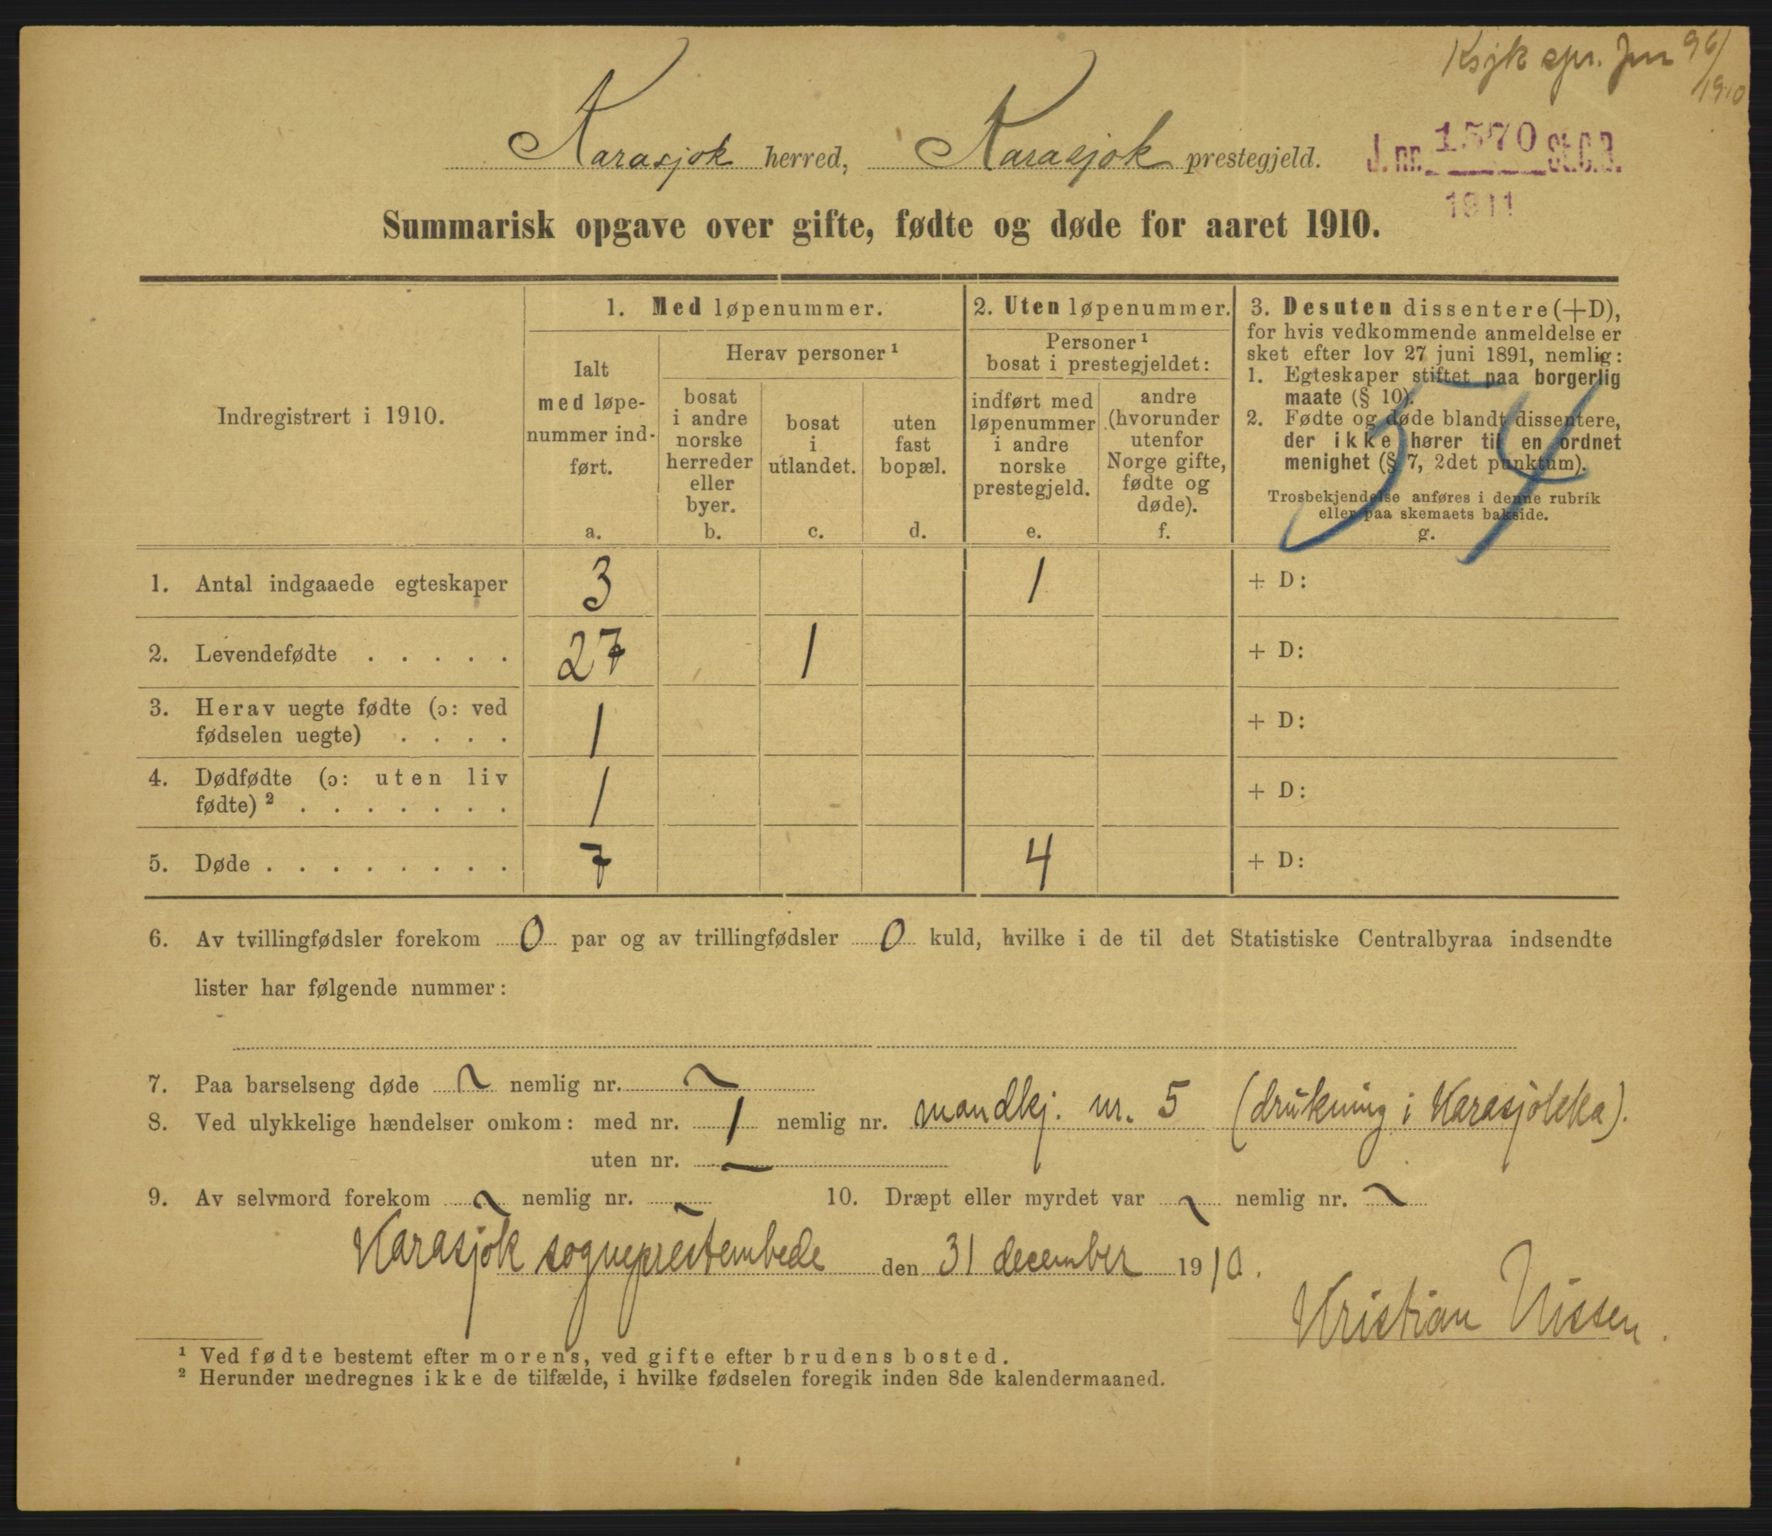 Ksjk spr. Jnr 96/
1910
Karasjok herred, Karasjok prestegjeld.
J. nr. 1570 St.C.B.
1911
Summarisk opgave over gifte, fødte og døde for aaret 1910.
Indregistrert i 1910.
1. Med løpenummer.
Ialt
med løpe-
nummer ind-
ført.
a.
Herav personer ¹
bosat
i andre
norske
herreder
eller
byer.
b.
bosat
i
utlandet.
c.
uten
fast
bopæl.
d.
2. Uten løpenummer.
Personer ¹
bosat i prestegjeldet:
indført med
løpenummer
i andre
norske
prestegjeld.
e.
andre
(hvorunder
utenfor
Norge gifte,
fødte og
døde).
f.
3. Desuten dissentere (+D),
for hvis vedkommende anmeldelse er
sket efter lov 27 juni 1891, nemlig:
1. Egteskaper stiftet paa borgerlig
maate (§ 10).
2. Fødte og døde blandt dissentere,
der ikke hører til en ordnet
menighet (§ 7, 2det punktum).
Trosbekjendelse anføres i denne rubrik
eller paa skemaets bakside.
g.
54
1. Antal indgaaede egteskaper 3 1 + D:
2. Levendefødte . . . . . 27 1 + D:
3. Herav uegte fødte (ɔ: ved
fødselen uegte) . . . . 1 + D:
4. Dødfødte (ɔ: uten liv
fødte) ² . . . . . . . 1 + D:
5. Døde . . . . . . . . 7 4 + D:
6. Av tvillingfødsler forekom 0 par og av trillingfødsler 0 kuld, hvilke i de til det Statistiske Centralbyraa indsendte
lister har følgende nummer:
7. Paa barselseng døde ~ nemlig nr. ~
8. Ved ulykkelige hændelser omkom: med nr. 1 nemlig nr. mandkj. nr. 5 (drukning i Karasjokka).
uten nr. ~
9. Av selvmord forekom ~ nemlig nr. ~ 10. Dræpt eller myrdet var ~ nemlig nr. ~
Karasjok sogneprestembede den 31 december 1910.
Kristian Nissen.
¹ Ved fødte bestemt efter morens, ved gifte efter brudens bosted.
² Herunder medregnes ikke de tilfælde, i hvilke fødselen foregik inden 8de kalendermaaned.